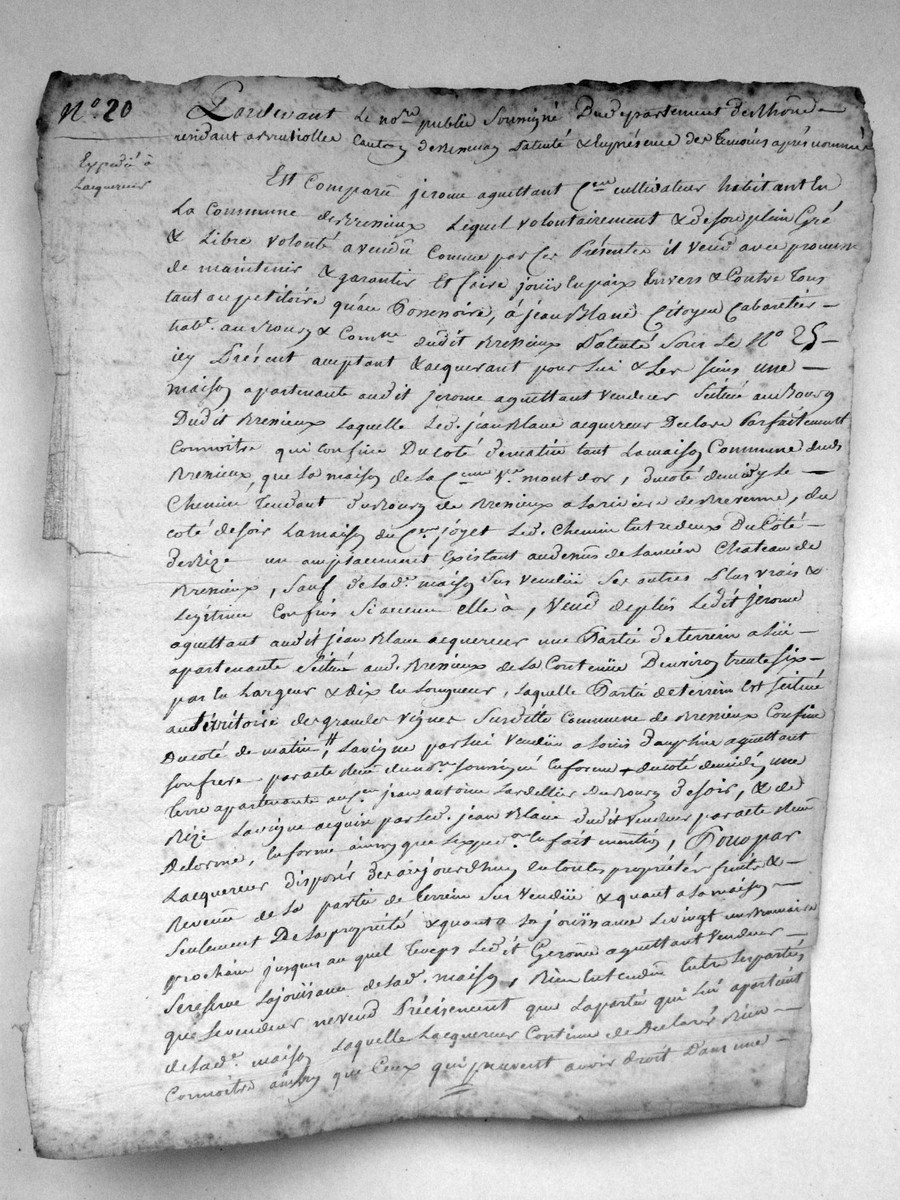 N° 20
Pardevant Le no.re public Soussigné Du departement du Rhône
Expedié à
Lacquereur
Est Comparu jerome aguettant C.en cultivateur habitant en
La Commune de Bressieux Lequel volontairement & de son plein Gré
& Libre volonté a vendu Comme par Ces Présentes il Vend avec promesse
de maintenir & garantir et faire jouir en paix Envers & Contre Tous
tant au petitoire qu'au Possessoire, à jean Blanc Citoyen Cabaretier
hab.t au Bourg & Com.ne dudit Bressieux Patenté Sous Le N° 25
icy Présent acceptant & acquerant pour Lui & Les siens une
maison apartenante audit jerome aguettant vendeur Scituée au Bourg
Dudit Bressieux Laquelle Led. jean Blanc acquereur Declare Parfaitement
Connoitre qui Confine Du Coté de matin tant La maison Commune dud.
Bressieux, que La maison de La C.enne V.e mont d'or, du coté de midy Le
Chemin Tendant du Bourg de Bressieux a La riviere de Brevenne, du
coté de soir La maison du C.en joyet Led. Chemin Entredeux Du Coté
de Bize un amplacement Existant audessus de Lancien Chateau de
Bressieux, Sauf de Lad.e maison Sus vendüe Ses autres Plus vrais &
Legitimes Confins Si aucuns elle à, Vend de plus Ledit jerome
aguettant audit jean Blanc acquereur une Partie de terrein a Lui
apartenante Scitué aud. Bressieux de La Contenüe Denviron trente Six
pas en Largeur & dix en Longueur, Laquelle Partie de terrein Est Scituée
au territoire des grandes vignes Susditte Commune de Bressieux Confine
Du Coté de matin, La vigne par Lui vendüe a Loüis Dauphine aguettant
son frere par acte Recu du no.re Soussigné en forme + du coté de midi une
Terre apartenante au C.en jean antoine Lardellier Du Bourg de soir, & de
Bize La vigne acquise par Led. jean Blanc dudit vendeur par acte Recu
Delorme, en forme ainsy que L'exped.on en fait mention, Pour par
Lacquereur disposer des aujourdhuy en toutes propriétés fruits &
Revenus de La partie de Terrein Sus vendüe & quant a La maison
Seulement De La propriété & quant a La joüissance Le vingt un Brumaire
prochain jusques au quel Temps Ledit Gerome aguettant Vendeur
Se reserve La joüissance de Lad.e maison, Bien Entendu Entre Les parties
que Le vendeur ne vend Précisement que La partie qui Lui apartient
de Lad.e maison Laquelle Lacquereur Continue de Declarer Bien
Connoitre ainsy que Ceux qui peuvent avoir droit Dans une